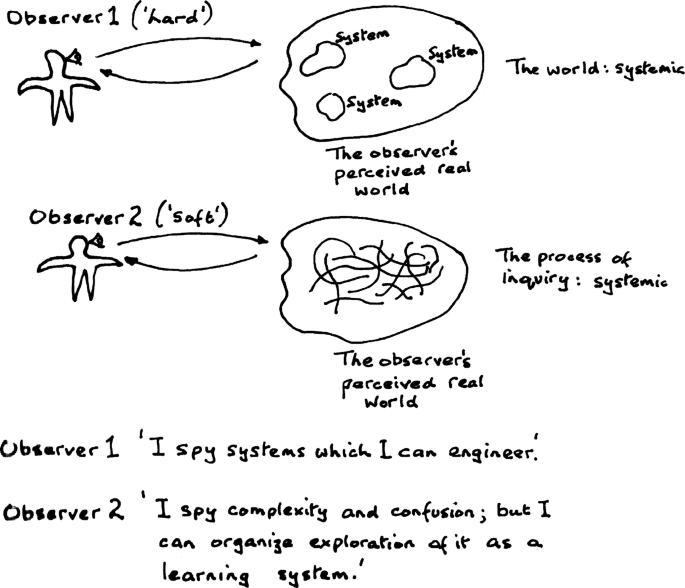 Observer 1 ('hard')
System
System
System
The world: systemic
The observer's
perceived real
world
Observer 2 ('Soft')
The process of
inquiry: systemic
The observer's
perceived real
World
Observer 1 'I spy systems which I can engineer.'
Observer 2 'I spy complexity and confusion; but I
can organize exploration of it as a
learning system.'